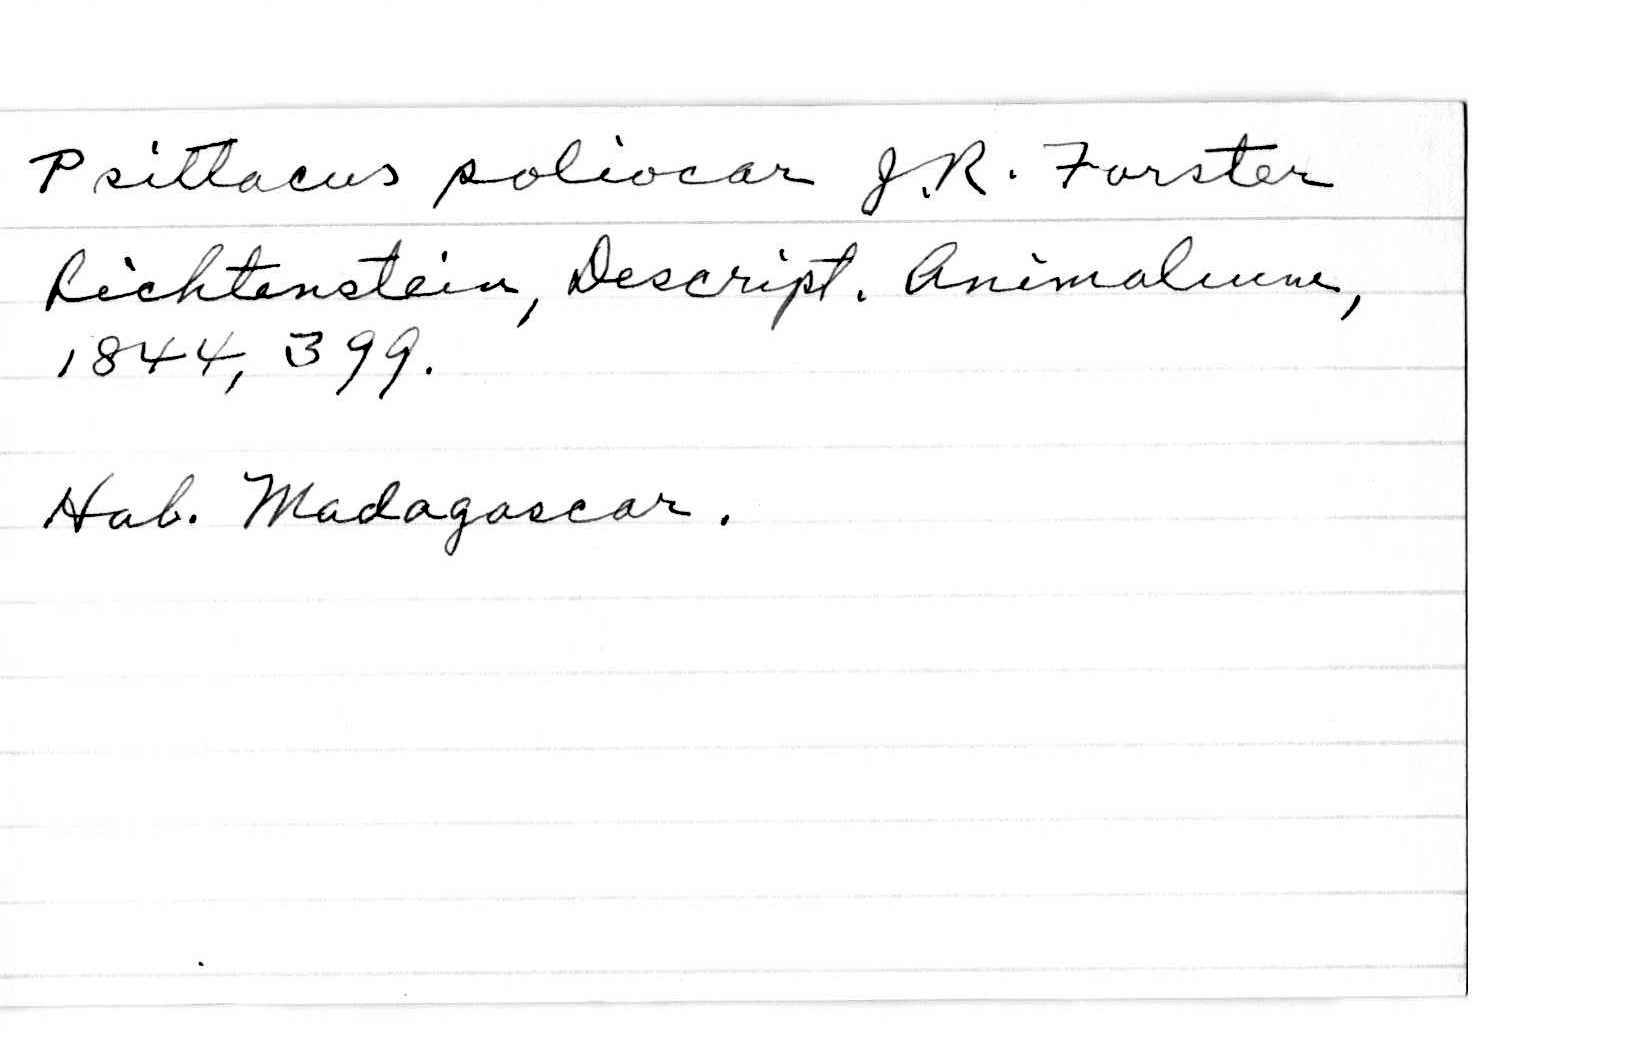 Psittacus poliocar J.R. Forster
Lichtenstein, Descript. Animalium,
1844, 399.
Hab. Madagascar.